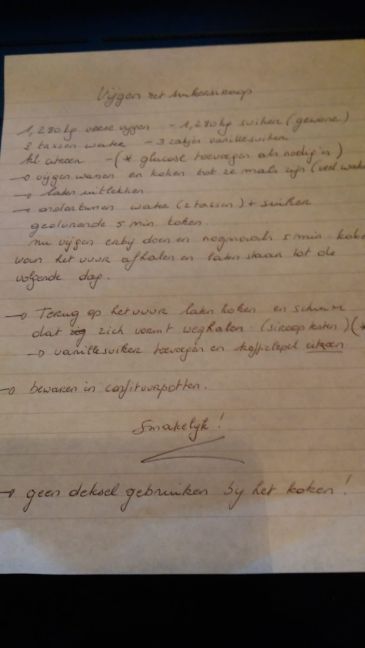 Vijgen met suikersiroop
1,280 kg verse vijgen - 1,280 kg suiker (gewone)
2 tassen water - 3 zakjes vanillesuiker
citroen - (* glucose toevoegen als nodig is)
→ vijgen wassen en koken tot ze mals zijn (veel water
→ laten uitlekken
→ ondertussen water (2 tassen) + suiker
gedurende 5 min koken
nu vijgen erbij doen en nogmaals 5 min koke
van het vuur afhalen en laten staan tot de
volgende dag.
→ Terug op het vuur laten koken en schuim
dat zich vormt weghalen. (siroop testen) (*
→ vanillesuiker toevoegen en koffielepel citroen
→ bewaren in confituurpotten.
Smakelijk!
→ geen deksel gebruiken bij het koken!